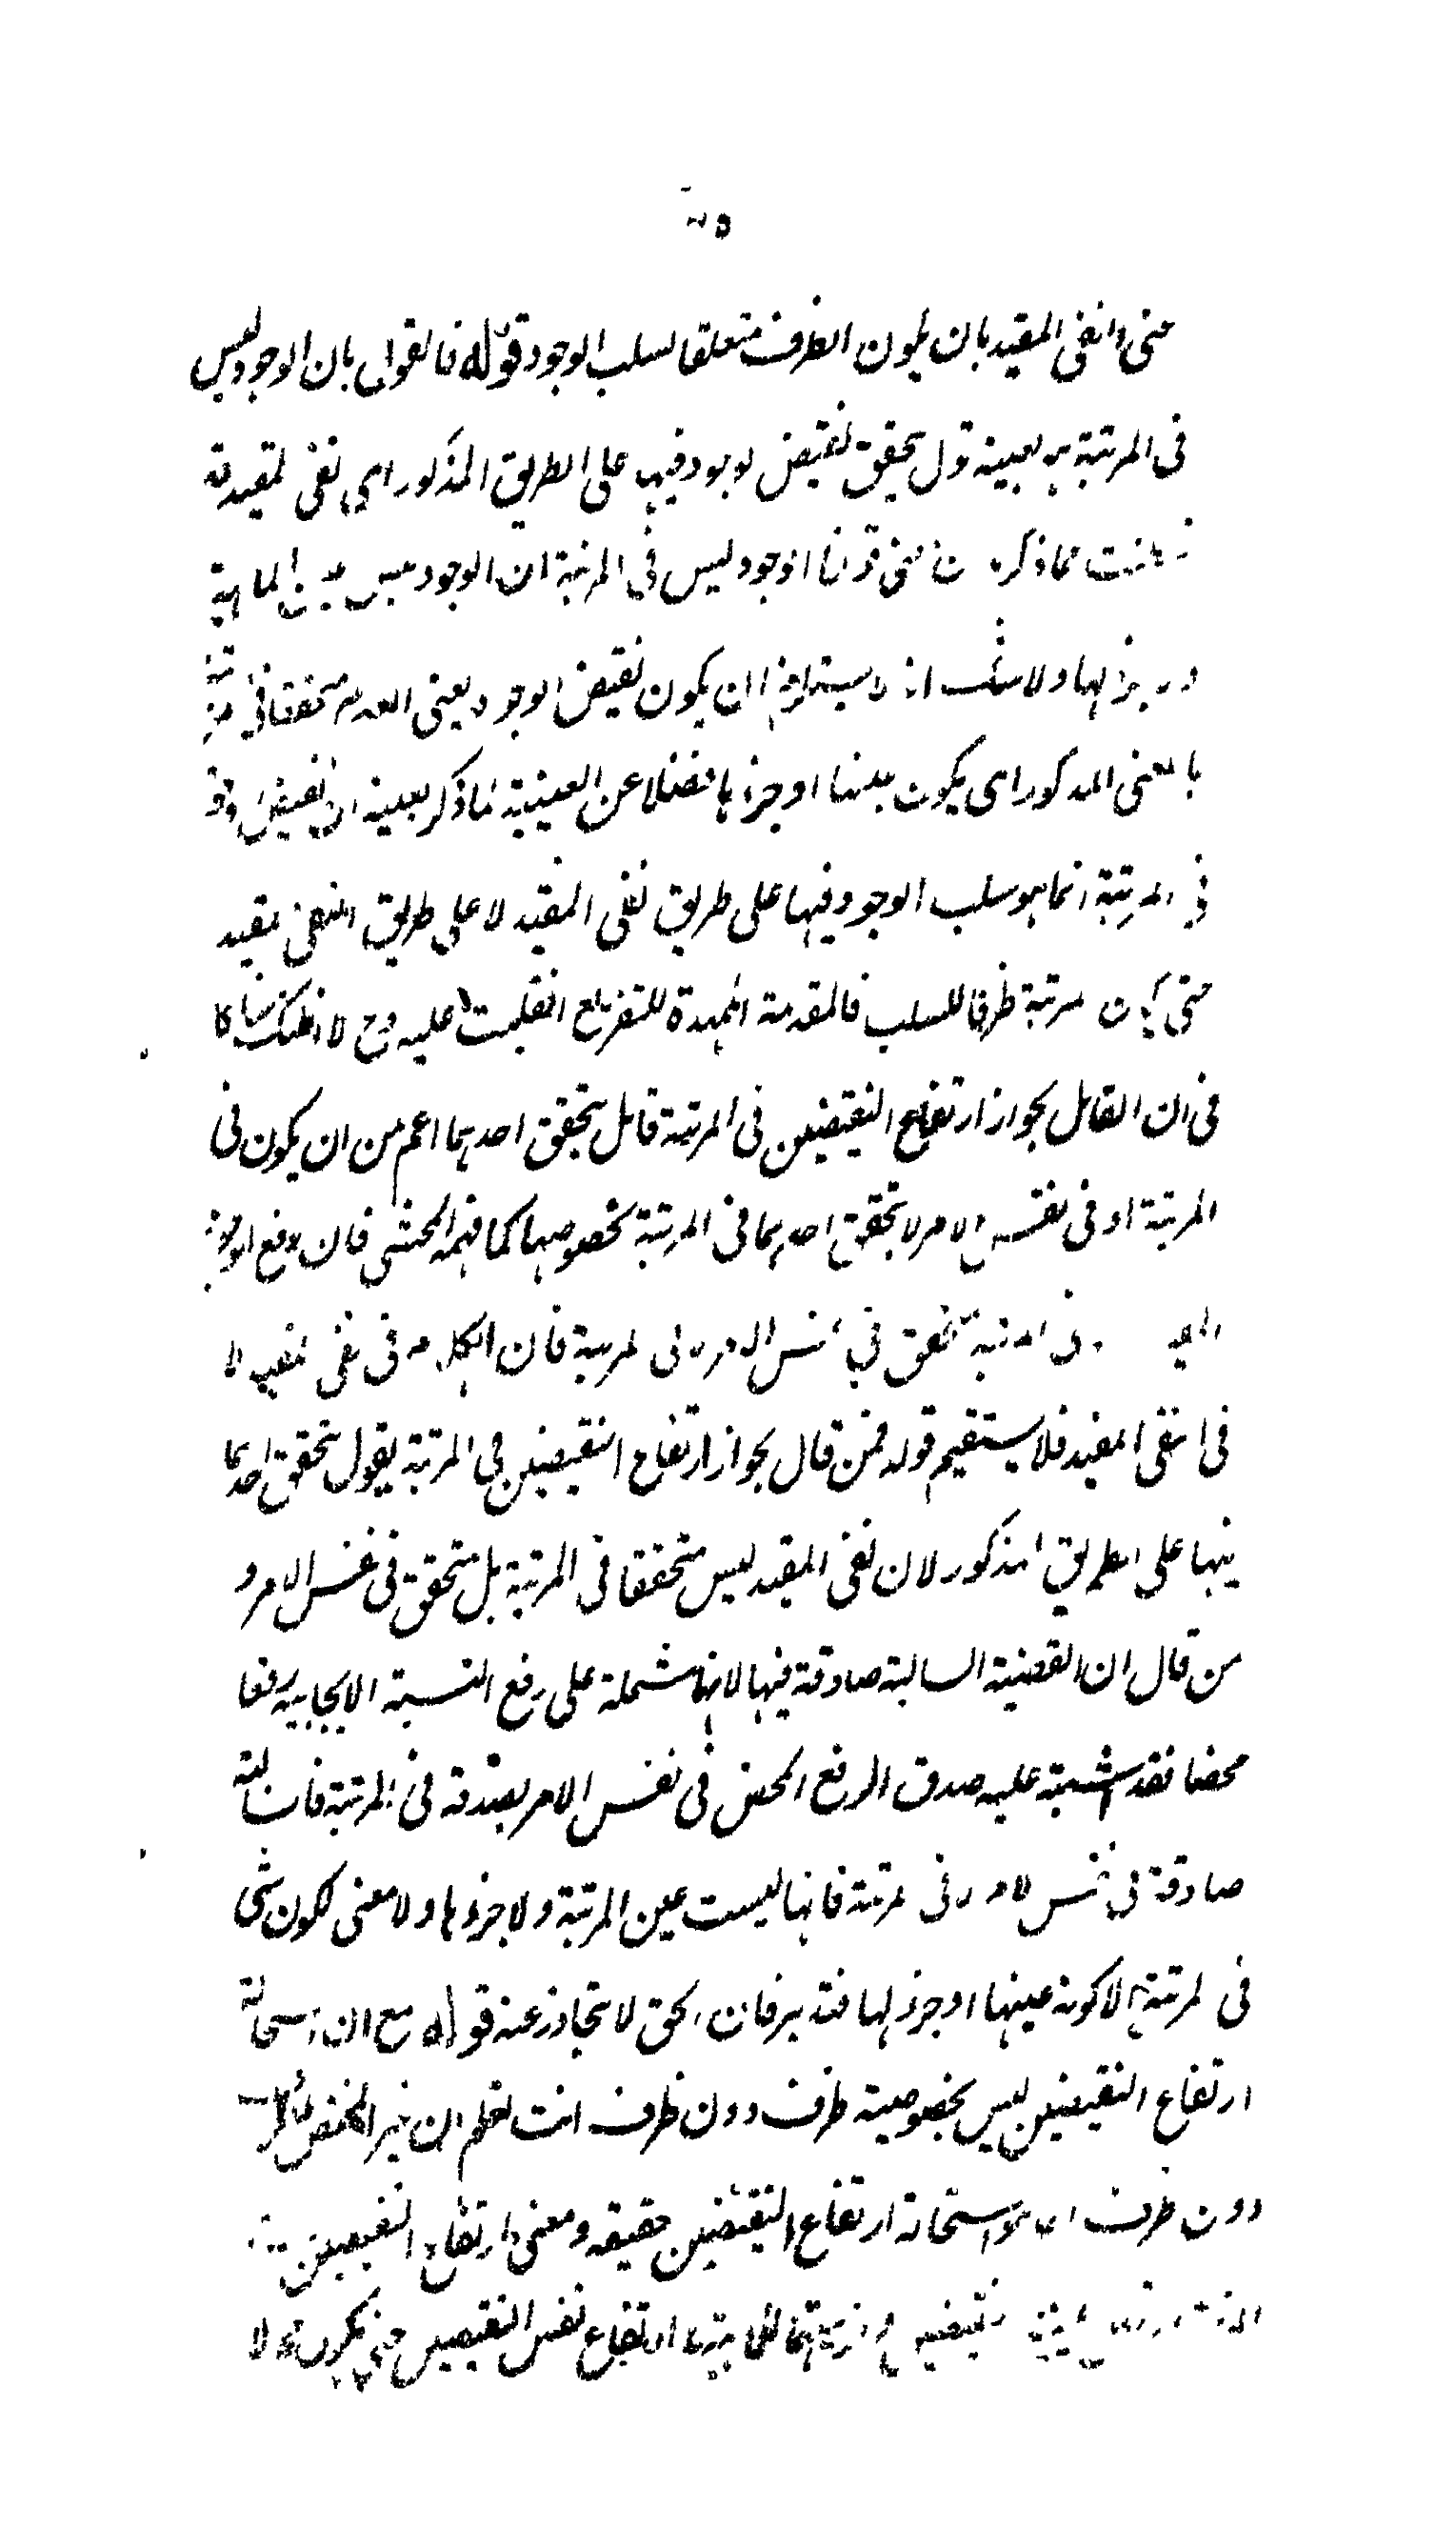 معنى النفى المقيد بان يكون الظرف متعلقا لسلب الوجود قوله فالقول بان الوجود ليس
فى المرتبة بعينه قول بتحقق نقيض الوجود فيها على الطريق المذكور اى نفى المقيد قد
مما ذكره ان معنى قولنا الوجود ليس فى المرتبة ان الوجود ليس عين الماهية
ولا جزء لها ولا شك انه لا يستلزم ان يكون نقيض الوجود يعنى العدم متحققا فى
بالمعنى المذكور اى يكون عينها او جزءها فضلا عن العينية لما ذكر بعينه ان نقيض
فى المرتبة انما هو سلب الوجود فيها على طريق نفى المقيد لا على طريق النفى المقيد
حتى يكون المرتبة ظرفا للسلب فالمقدمة الممهدة للتفريع انقلبت عليه وح لا اظنك شاكا
فى ان القائل بجواز ارتفاع النقيضين فى المرتبة قائل بتحقق احدهما اعم من ان يكون فى
المرتبة او فى نفس الامر لا بتحقق احدهما فى المرتبة بخصوصها كما فهمه المحشى فان رفع الوجود
فى المرتبة متحقق فى نفس الامر لا فى المرتبة فان الكلام فى نفى المقيد لا
فى النفى المقيد فلا يستقيم قوله فمن قال بجواز ارتفاع النقيضين فى المرتبة يقول بتحقق احدهما
فيها على الطريق المذكور لان نفى المقيد ليس متحققا فى المرتبة بل متحقق فى نفس الامر و
من قال ان القضية السالبة صادقة فيها لانها مشتملة على رفع النسبة الايجابية رفعا
محضا فقد اشتبه عليه صدق الرفع المحض فى نفس الامر بصدقه فى المرتبة فان السالبة
صادقة فى نفس الامر لا فى المرتبة فانها ليست عين المرتبة ولا جزءها ولا معنى لكون شى
فى المرتبة الا كونه عينها او جزء لها فتدبر فان الحق لا يتجاوز عنه قوله مع ان استحالة
ارتفاع النقيضين ليس بخصوصية ظرف دون ظرف انت تعلم ان غير المختص بظرف
دون ظرف انما هو استحالة ارتفاع النقيضين حقيقة ومعنى ارتفاع النقيضين
النقيضين ارتفاع نفس النقيضين حتى يكون لا